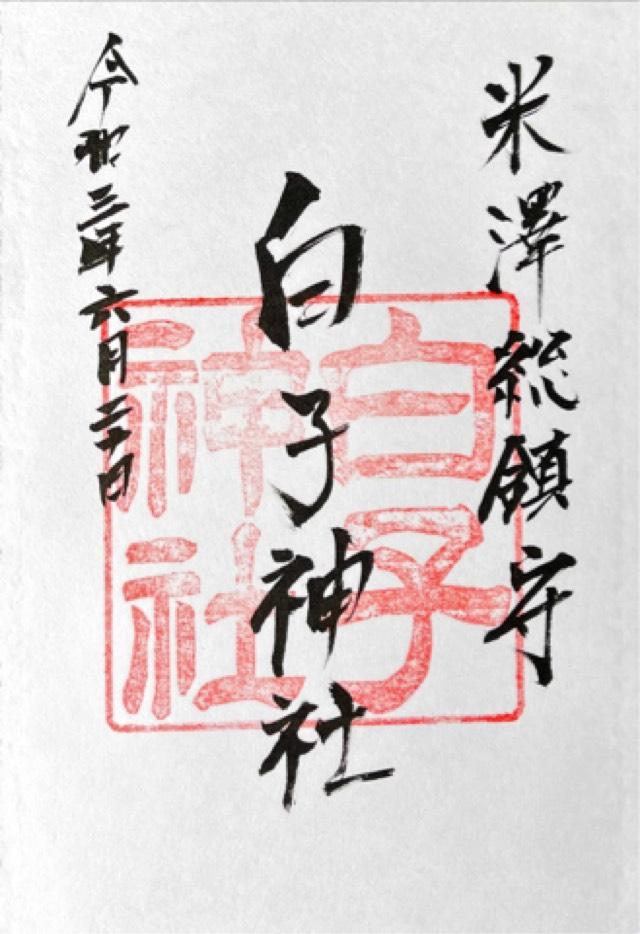 米澤総鎮守
白子神社
白子
神社
令和三年六月二十日